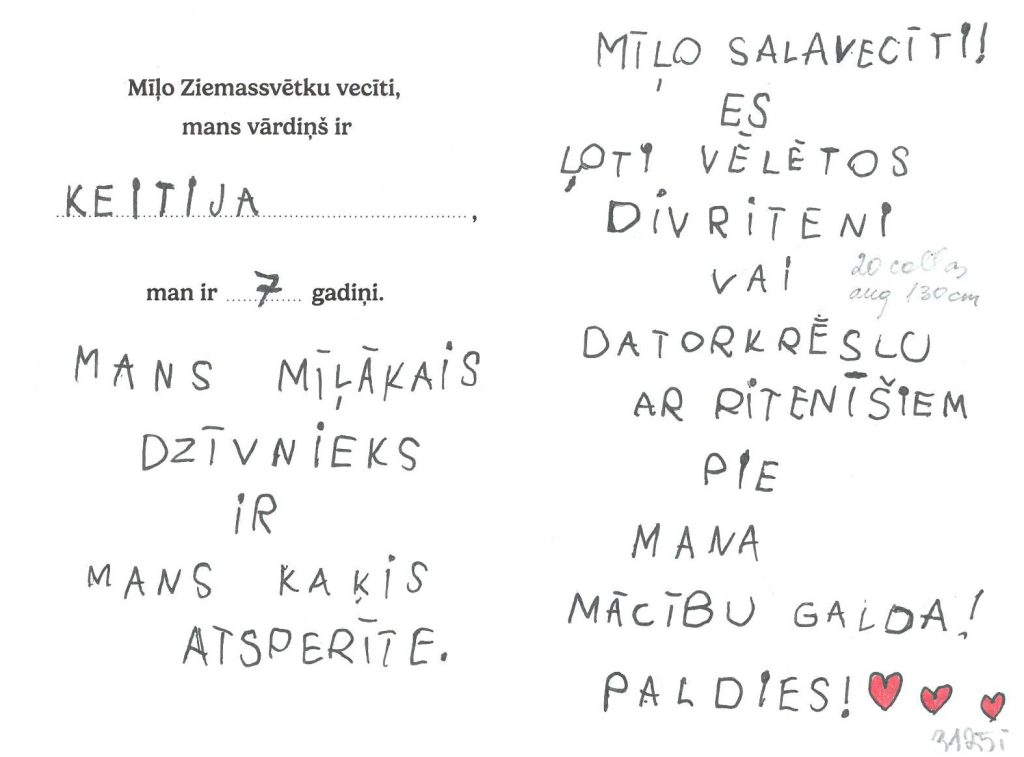 Mīļo Ziemassvētku vecīti,
mans vārdiņš ir
KEITIJA,
man ir 7 gadiņi.
MANS MĪĻĀKAIS
DZĪVNIEKS
IR
MANS KAĶIS
ATSPERĪTE.
MĪĻO SALAVECĪTI!
ES
ĻOTI VĒLĒTOS
DIVRITENI
VAI
20 collas
aug 130cm
DATORKRĒSLU
AR RITENĪŠIEM
PIE
MANA
MĀCĪBU GALDA!
PALDIES!